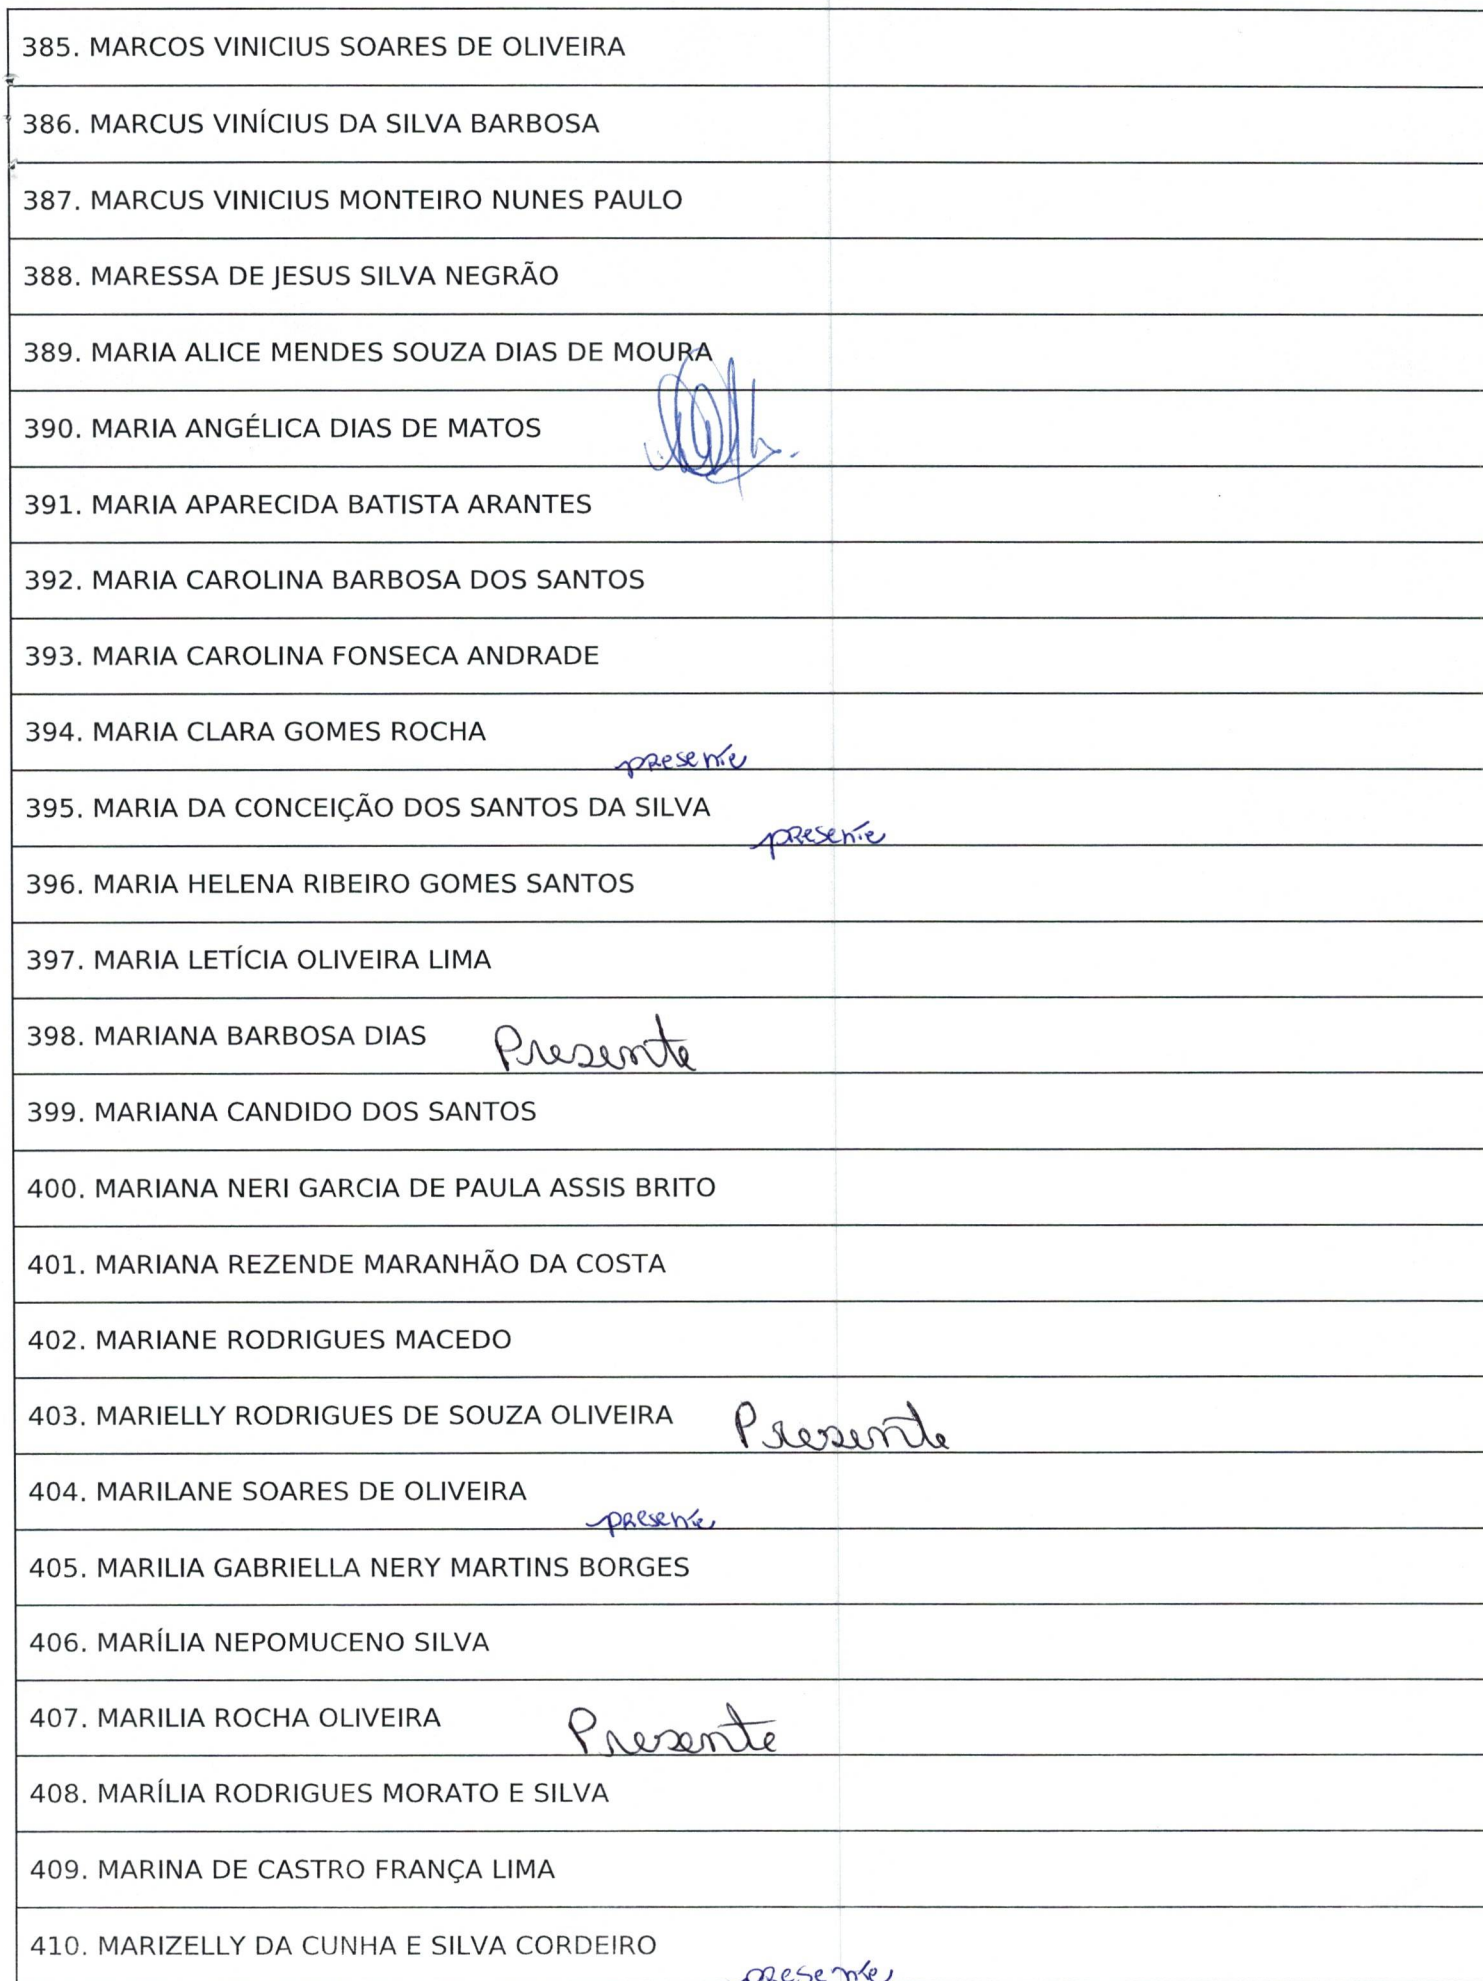 385. MARCOS VINICIUS SOARES DE OLIVEIRA
386. MARCUS VINÍCIUS DA SILVA BARBOSA
387. MARCUS VINICIUS MONTEIRO NUNES PAULO
388. MARESSA DE JESUS SILVA NEGRÃO
389. MARIA ALICE MENDES SOUZA DIAS DE MOURA
390. MARIA ANGÉLICA DIAS DE MATOS
391. MARIA APARECIDA BATISTA ARANTES
392. MARIA CAROLINA BARBOSA DOS SANTOS
393. MARIA CAROLINA FONSECA ANDRADE
394. MARIA CLARA GOMES ROCHA presente
395. MARIA DA CONCEIÇÃO DOS SANTOS DA SILVA presente
396. MARIA HELENA RIBEIRO GOMES SANTOS
397. MARIA LETÍCIA OLIVEIRA LIMA
398. MARIANA BARBOSA DIAS Presente
399. MARIANA CANDIDO DOS SANTOS
400. MARIANA NERI GARCIA DE PAULA ASSIS BRITO
401. MARIANA REZENDE MARANHÃO DA COSTA
402. MARIANE RODRIGUES MACEDO
403. MARIELLY RODRIGUES DE SOUZA OLIVEIRA Presente
404. MARILANE SOARES DE OLIVEIRA presente
405. MARILIA GABRIELLA NERY MARTINS BORGES
406. MARÍLIA NEPOMUCENO SILVA
407. MARILIA ROCHA OLIVEIRA Presente
408. MARÍLIA RODRIGUES MORATO E SILVA
409. MARINA DE CASTRO FRANÇA LIMA
410. MARIZELLY DA CUNHA E SILVA CORDEIRO presente